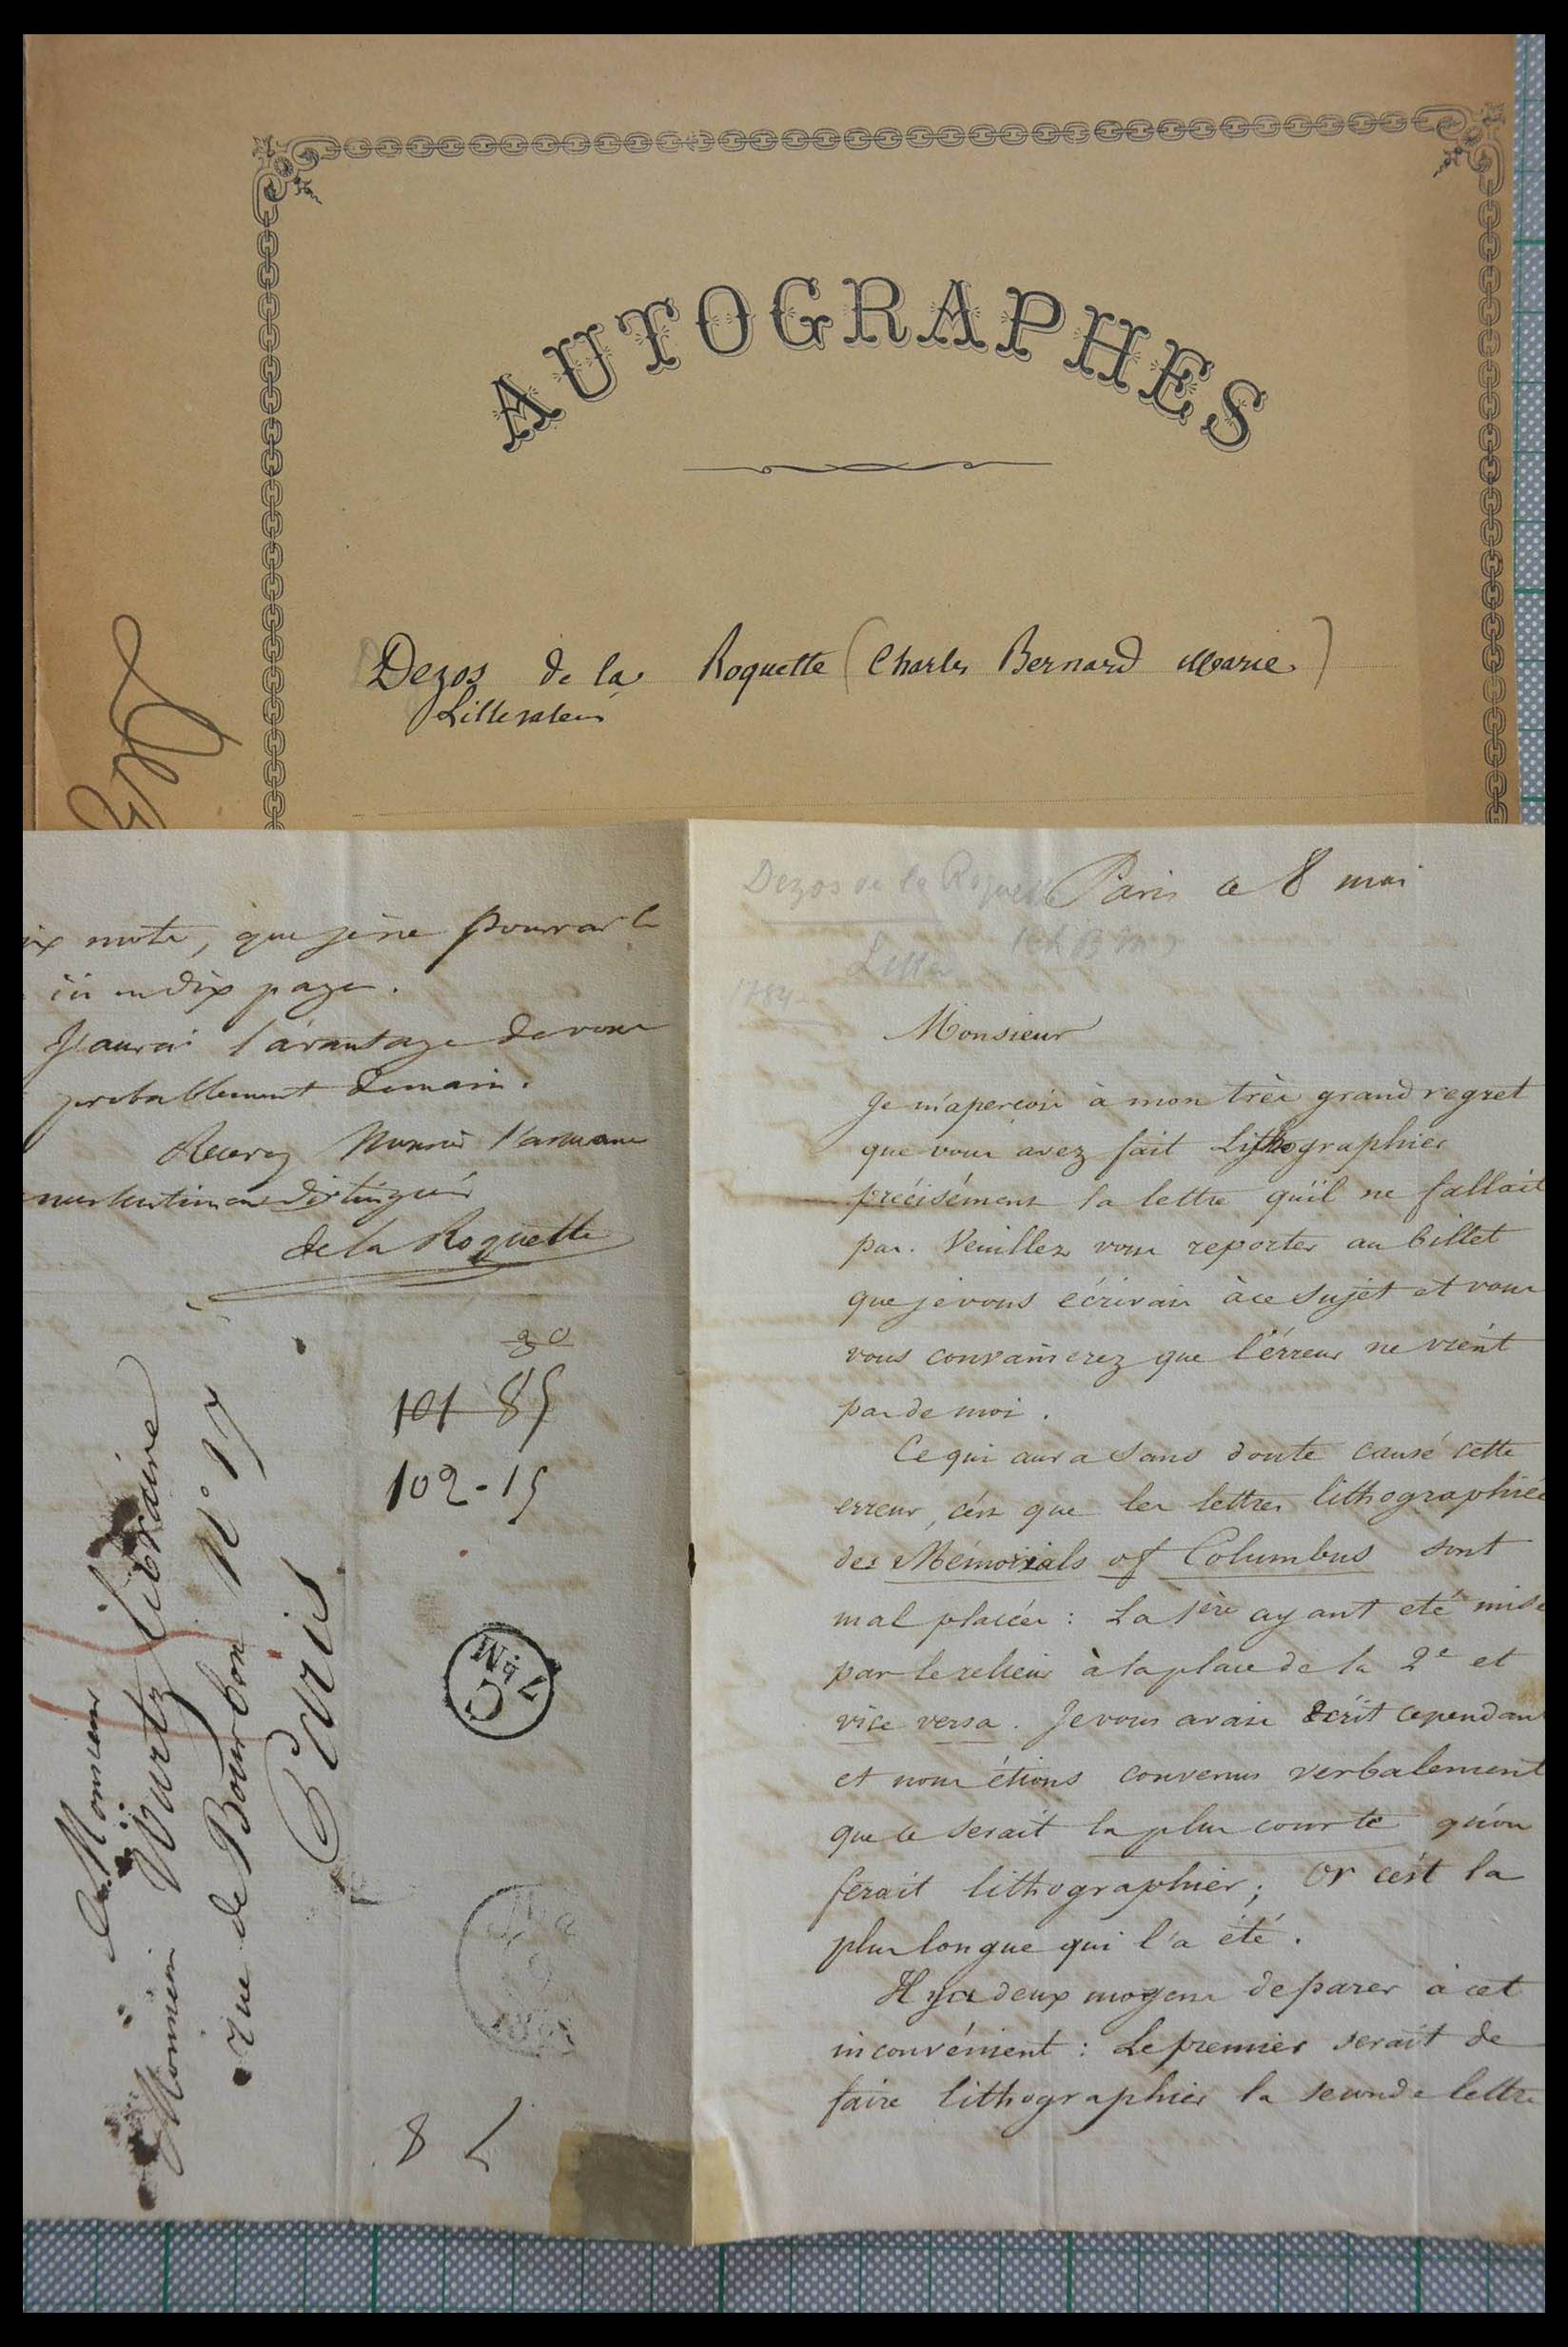 AUTOGRAPHES
Dezos de la Roquette (Charles Bernard Marie)
Litterateur
Dezos de la Roquette
Paris ce 8 mai
Monsieur
Je m'aperçois à mon très grand regret
que vous avez fait Lithographier
précisément la lettre qu'il ne fallait
pas. Veuillez vous reporter au billet
que je vous écrivais à ce sujet et vous
vous convaincrez que l'érreur ne vient
pas de moi.
Ce qui aura sans doute causé cette
erreur, c'est que les lettres lithographiées
des Mémorials of Columbus sont
mal placées : La 1ère ayant eté mise
par le relieur à la place de la 2e et
vice versa. Je vous avais écrit cependant
et nous étions convenus verbalement
que ce serait la plus courte qu'on
ferait lithographier; Or c'est la
plus longue qui l'a été.
Il y a deux moyens de parer à cet
inconvénient : Le premier serait de
faire lithographier la seconde lettre
mots, que je ne pourrai
ici en dix pages.
J'aurai l'avantage de vous
probablement demain.
Recevez Monsieur l'assurance
distingués
de la Roquette
30
101 85
102-15
A Monsieur
Monsieur Wurtz Libraire
rue de Bourbon N° 17
Paris
8